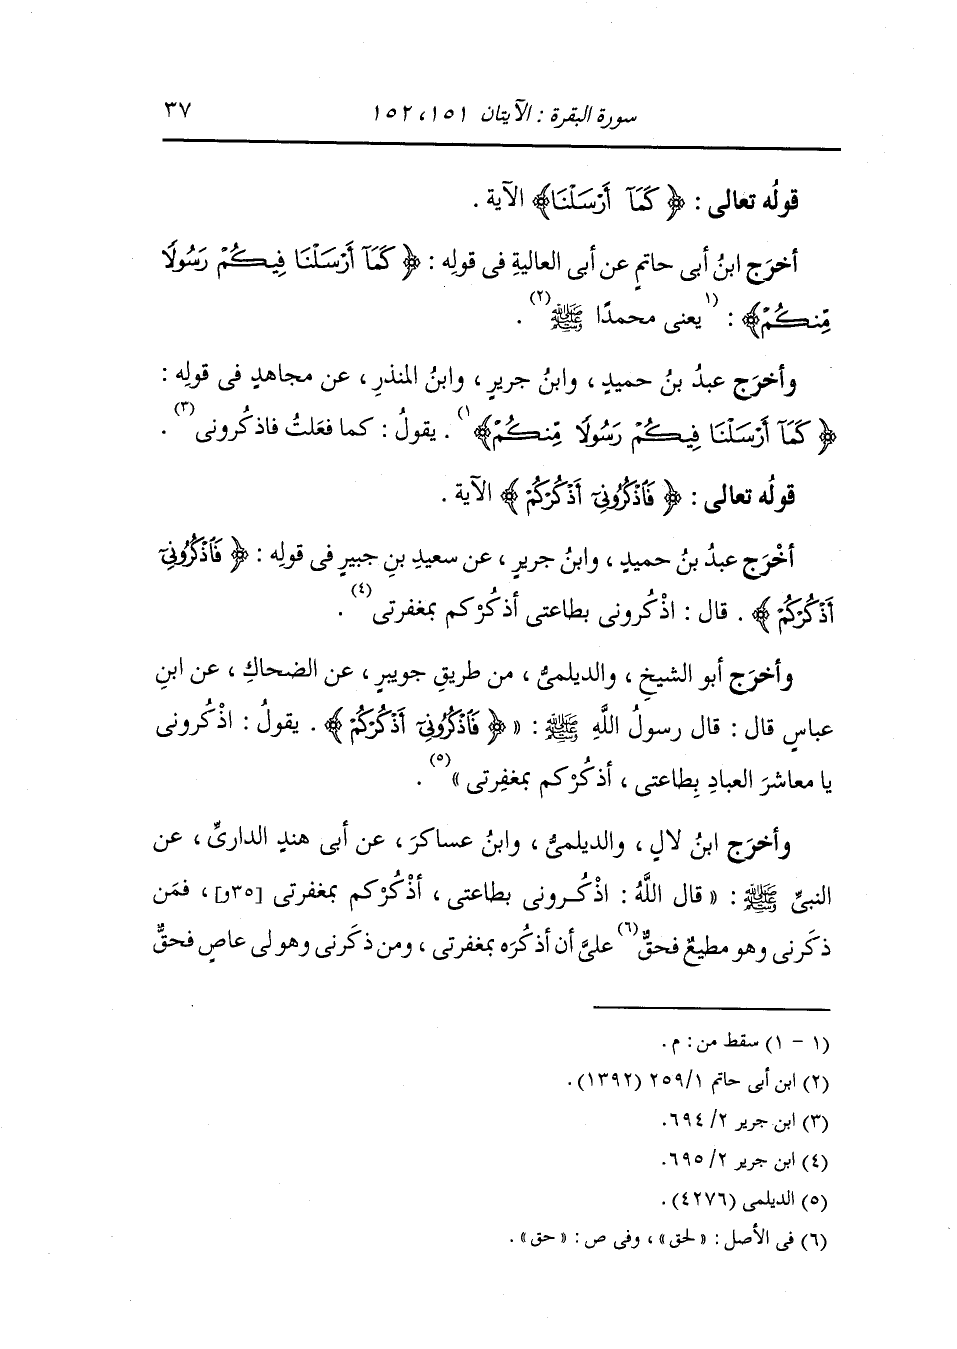 سورة البقرة : الآيتان ١٥١، ١٥٢ ٣٧
قولُه تعالى : ﴿ كَمَآ أَرْسَلْنَا﴾ الآية .
أخرَج ابنُ أبى حاتمٍ عن أبى العاليةِ فى قولِه : ﴿ كَمَآ أَرْسَلْنَا فِيكُمْ رَسُولًا
مِّنكُمْ﴾ : (١ يعنى محمدًا ﷺ(٢) .
وأخرَج عبدُ بنُ حميدٍ ، وابنُ جريرٍ ، وابنُ المنذرِ ، عن مجاهدٍ فى قولِه :
﴿ كَمَآ أَرْسَلْنَا فِيكُمْ رَسُولًا مِّنكُمْ﴾ ١) . يقولُ : كما فعَلتُ فاذكُرونى(٣) .
قولُه تعالى : ﴿ فَاذْكُرُونِىٓ أَذْكُرْكُمْ ﴾ الآية .
أخْرَج عبدُ بنُ حميدٍ ، وابنُ جريرٍ ، عن سعيدِ بنِ جبيرٍ فى قولِه : ﴿ فَاذْكُرُونِىٓ
أَذْكُرْكُمْ ﴾ . قال : اذْكُرونى بطاعتى أذكُرْكم بمغفرتى(٤) .
وأخرَج أبو الشيخِ ، والديلمىُّ ، من طريقِ جويبرٍ ، عن الضحاكِ ، عن ابنِ
عباسٍ قال : قال رسولُ اللَّهِ ﷺ : « ﴿ فَاذْكُرُونِىٓ أَذْكُرْكُمْ ﴾ . يقولُ : اذْكُرونى
يا معاشرَ العبادِ بِطاعتى ، أذكُرْكم بمغفِرتى »(٥) .
وأخرَج ابنُ لالٍ ، والديلمىُّ ، وابنُ عساكرَ ، عن أبى هندٍ الدارىِّ ، عن
النبىِّ ﷺ : « قال اللَّهُ : اذْكُرونى بطاعتى ، أذْكُرْكم بمغفرتى [٣٥و] ، فمَن
ذكَرنى وهو مطيعٌ فحقٌّ(٦) علىَّ أن أذكُرَه بمغفرتى ، ومن ذكَرنى وهو لى عاصٍ فحقٌّ
(١ - ١) سقط من : م .
(٢) ابن أبى حاتم ١/ ٢٥٩ (١٣٩٢) .
(٣) ابن جرير ٢/ ٦٩٤.
(٤) ابن جرير ٢/ ٦٩٥.
(٥) الديلمى (٤٢٧٦) .
(٦) فى الأصل : «لحق» ، وفى ص : «حق» .